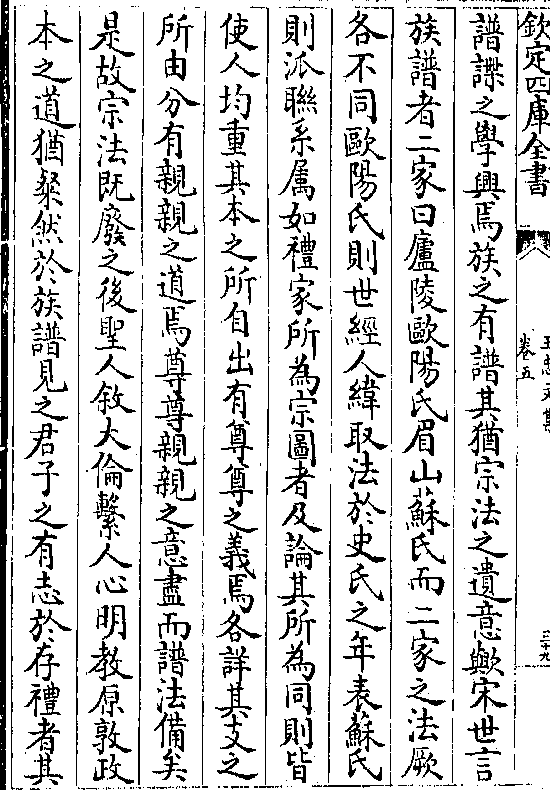 欽定四庫全書
卷五
譜諜之學興焉族之有譜其猶宗法之遺意歟宋世言
族譜者二家曰廬陵歐陽氏眉山蘇氏而二家之法厥
各不同歐陽氏則世經人緯取法於史氏之年表蘇氏
則派聯系属如禮家所為宗圖者及論其所為同則皆
使人均重其本之所自出有尊尊之義焉各詳其支之
所由分有親親之道焉尊尊親親之意盡而譜法備矣
是故宗法既廢之後聖人敘大倫繫人心明教原敦政
本之道猶粲然於族譜見之君子之有志於存禮者其